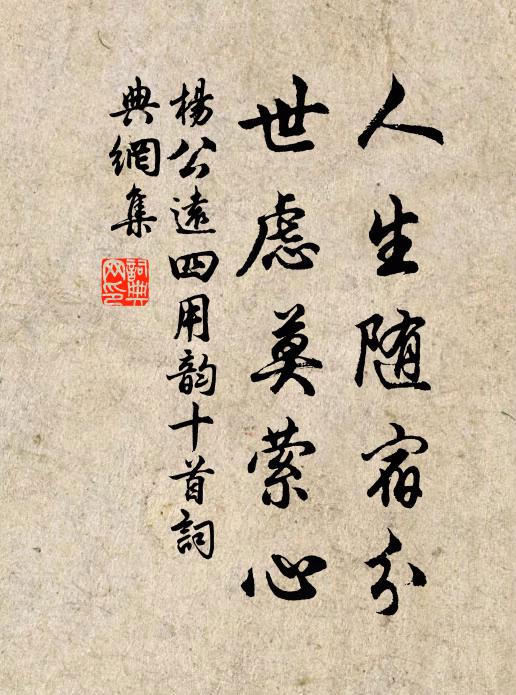 人生随宿分
世慮莫萦心
楊公遠四用韵十首詞
典網集
詞典网印